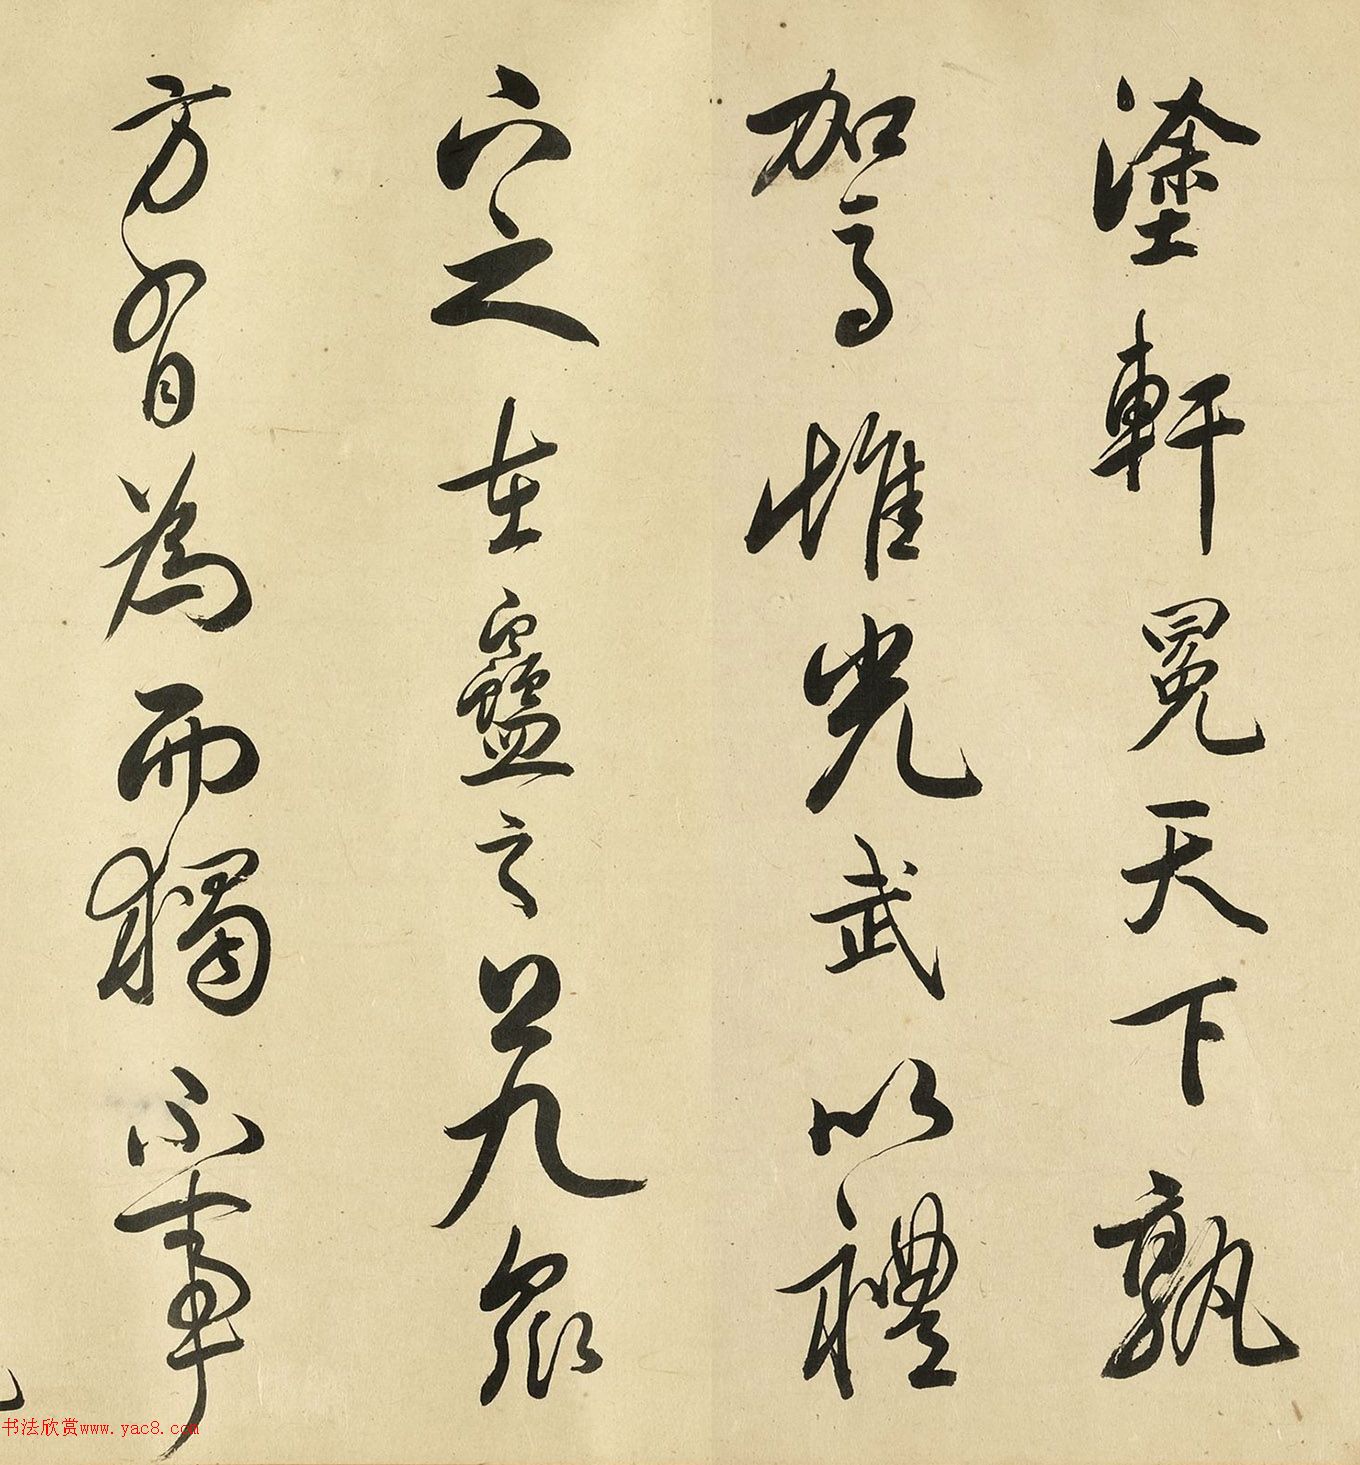 塗軒冕天下孰
加焉惟光武以禮
下之在蠱之上九衆
方有為而獨不事
书法欣赏www.yac8.com